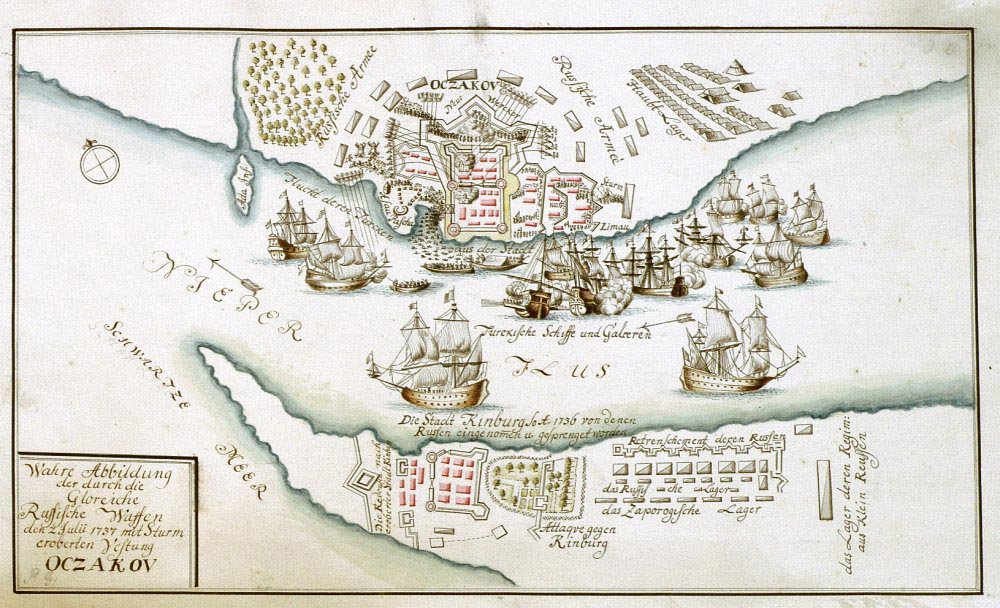 OCZAKOV
Rußische Armée
Rußische Armée
Haubt-Lager
Neue Werck
Ada Insl
Flucht deren
aus der Stadt
Limau
NIEPER
FLUS
Turckische Schiffe und Galeeren
SCHWARTZE
MEER
Die Stadt Kinburg so A. 1736 von denen
Russen eingenomen u. gesprenget worden
Retrenschement deren Russen
das Rußische Lager
das Zaporogische Lager
Attaqve gegen
Kinburg
das Lager deren Regim:
aus Klein Reussen
Wahre Abbildung
der durch die
Gloreiche
Russische Waffen
den 2 Julii 1737 mit Sturm
eroberten Vestung
OCZAKOV